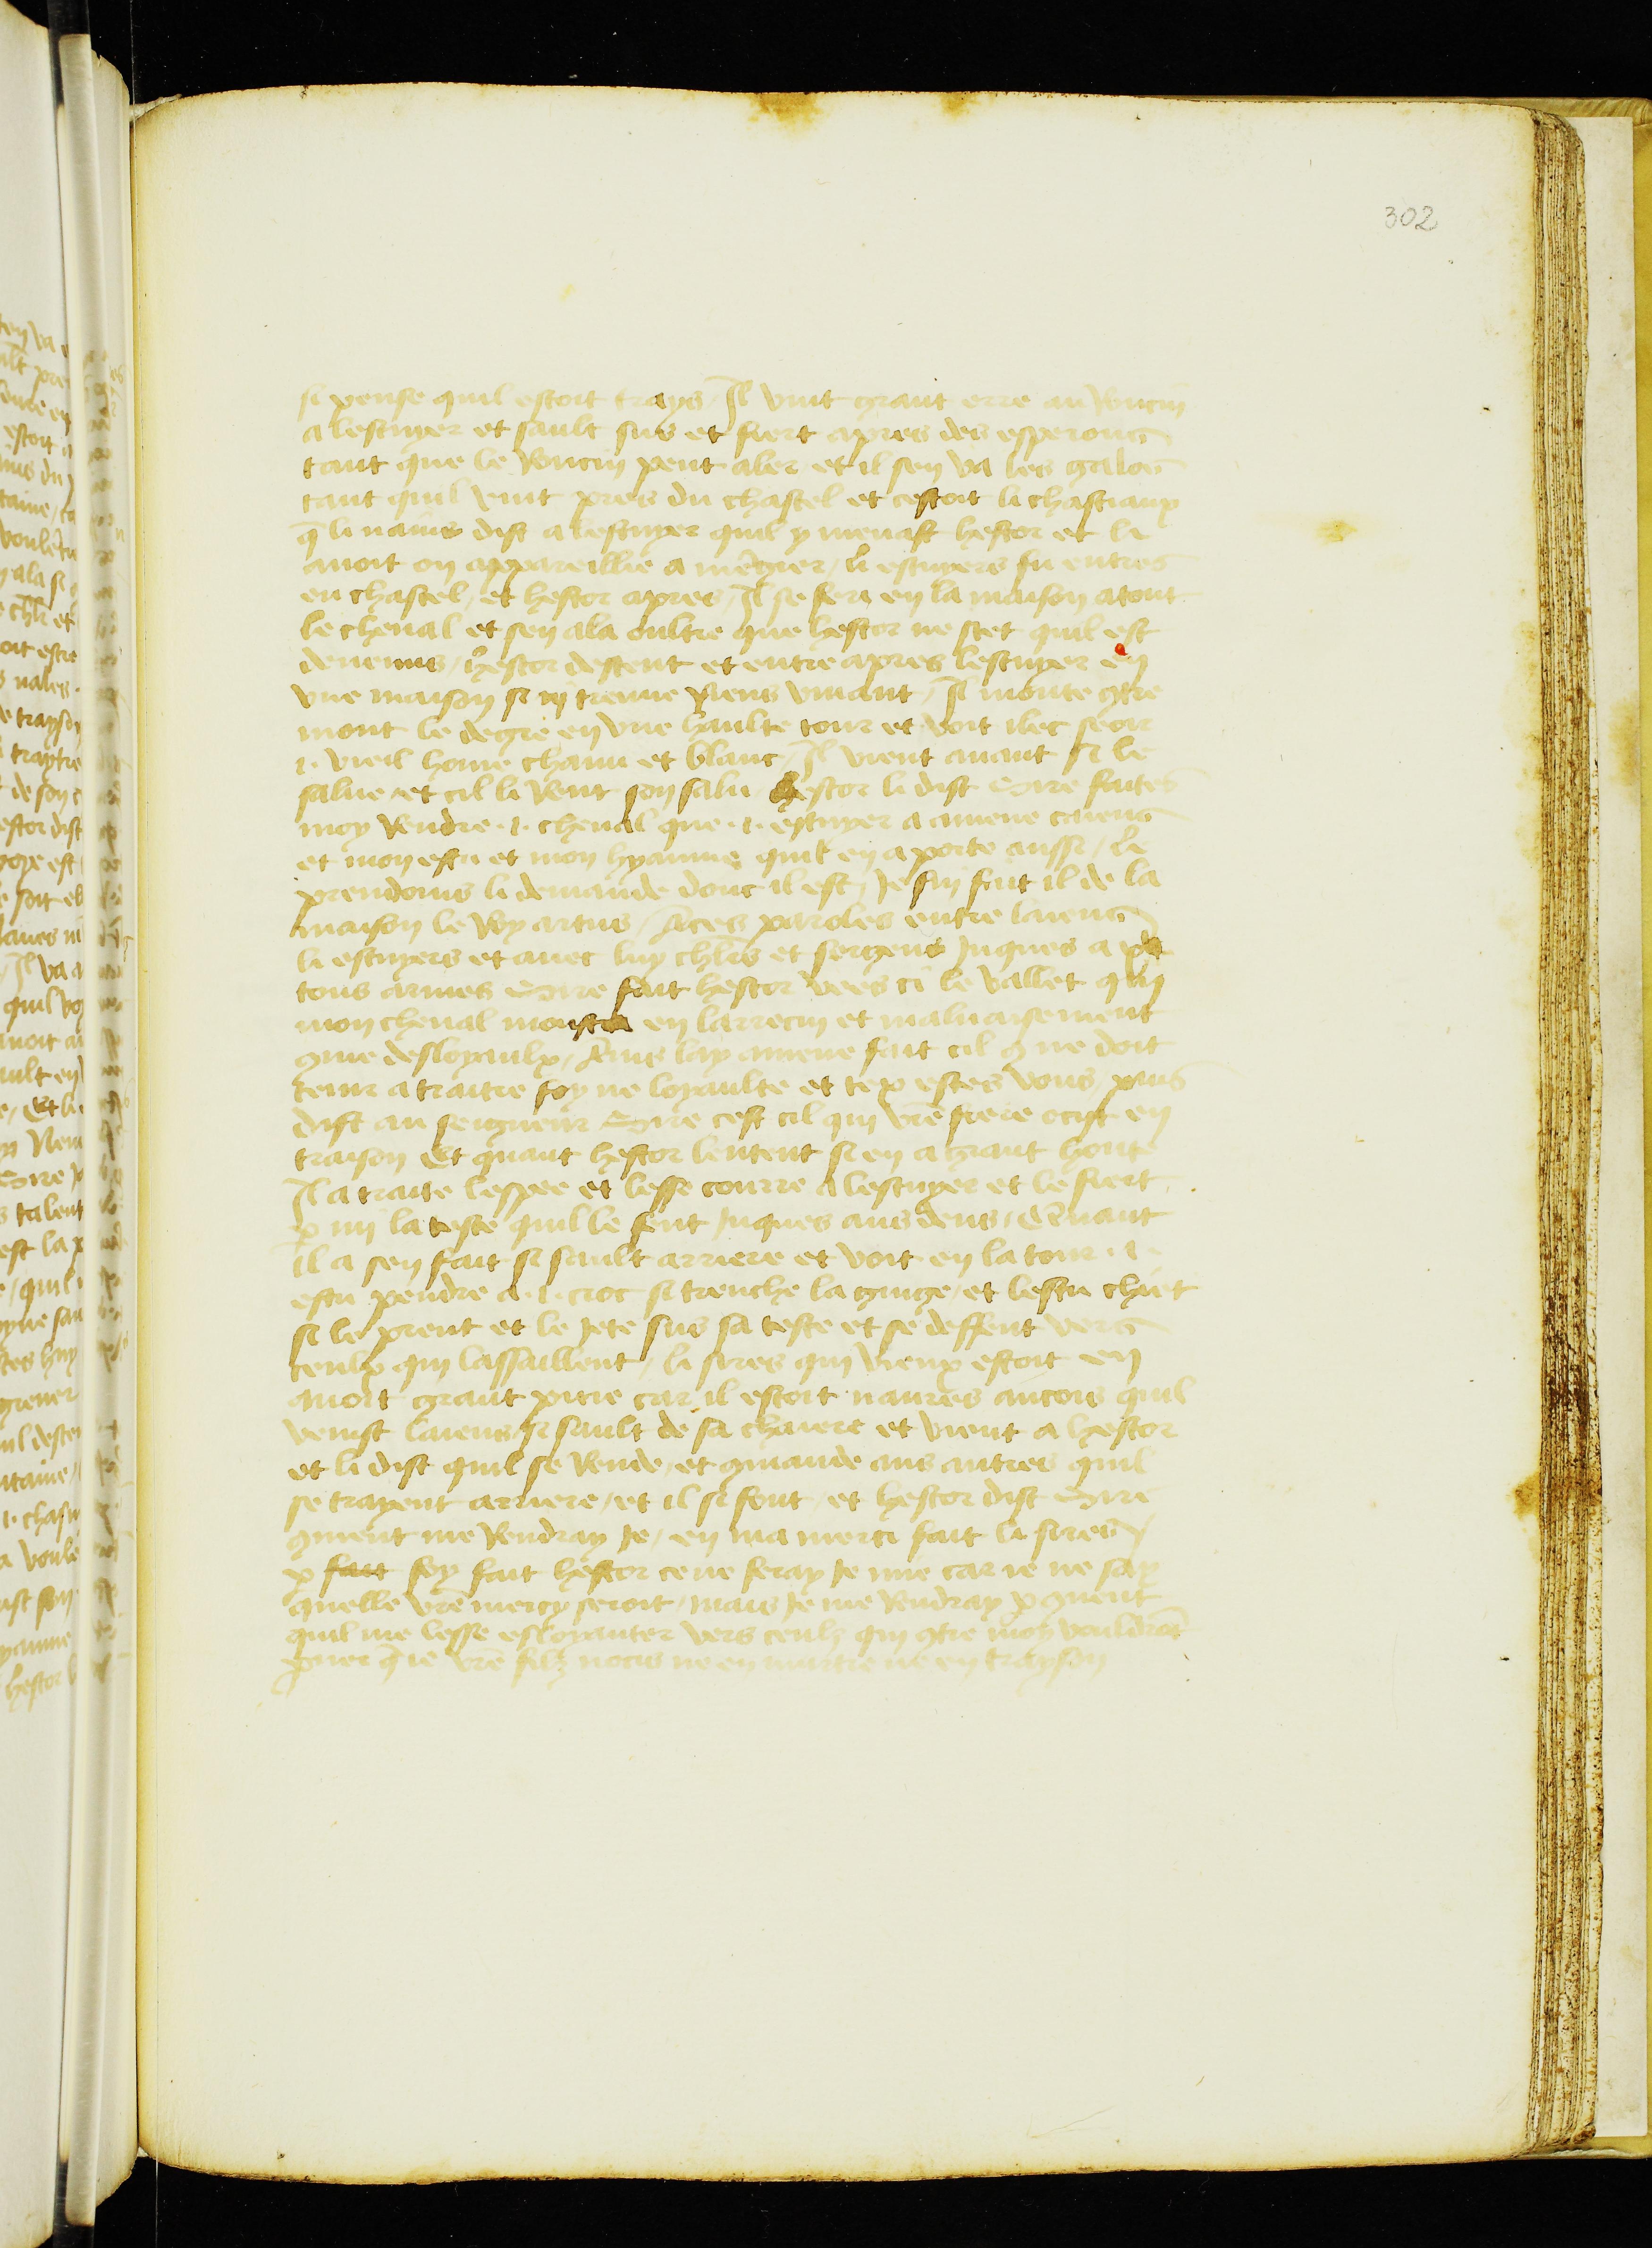 302
si pense quil estoit trays / Il vint grant erre au Roncin
a lescuyer et sault sus et fiert apres des esperons
tant que le Roncin peut aler et il sen va les galos
tant quil vint pres du chastel et cestoit li chastiaux
q̄ li nains dist a lescuyer quil y menast hestor et li
auoit on appareillie a mēgier / li escuyers fu entres
en chastel / et hestor apres / Il se feri en la maison atout
le cheual et sen ala oultre que hestor ne scet quil est
deuenus / hestor descent et entre apres lescuyer en
vne maison si nj treuue riens viuant / Il monte cōtre
mont le degre en vne haulte tour et voit ilec seoir
.i. vieil home chanu et blanc / Il vient auant si le
salue / et cil li Rent son salu hestor li dist Sire faites
moy Rendre .i. cheual que .i. escuyer a amene caiens
et mon escu et mon hyaume quil en a porte aussi / Le
preudoms li demande donc il est / Je sui fait il de la
maison le Roy artus / A ces paroles entre laiens
li escuyers et auec luy chlrs et sergens Juques a
tous armes Sire fait hestor vees ci le vallet qui
mon cheual en larrecin et maluaisement
cōme desloyaulx / Ains lay amene fait cil q̄ ne doit
tenir a traitre foy ne loyaulte et tex estes vous / puis
dist au seigneur Sire cest cil qui vr̄e frere ocist en
traison Et quant hestor lentent si en a grant honte
Il a traite lespee et lesse courre a lescuyer et le fiert
p̲ mi la teste quil le fent Juques aus dens /
il a sen fait si sault arriere et voit en la tour .i.
escu pendre a .i. croc si trenche la guige / et lescu chiet
si le prent et le Jete sus sa teste et se deffent vers
ceulx qui lassaillent / li sires qui vieux estoit en
auoit grant pitie car il estoit naures ancois quil
venist laiens / si sault de sa chaiere et vient a hestor
et li dist quil se Rende / et cōmande aus autres quil
se trayent arriere / et il si font / et hestor dist Sire
cōment me Rendray Je / en ma merci fait li sires /
p̲ fait foy fait hestor ce ne feray Je mie car ie ne say
quelle vr̄e mercy seroit / mais Je me Rendray p̲ cōuent
quil me lesse esloyauter vers ceulz qui cōtre moy vouldrōt
p̲uer q̄ ie vr̄e filz nocis ne en murtre ne en trayson